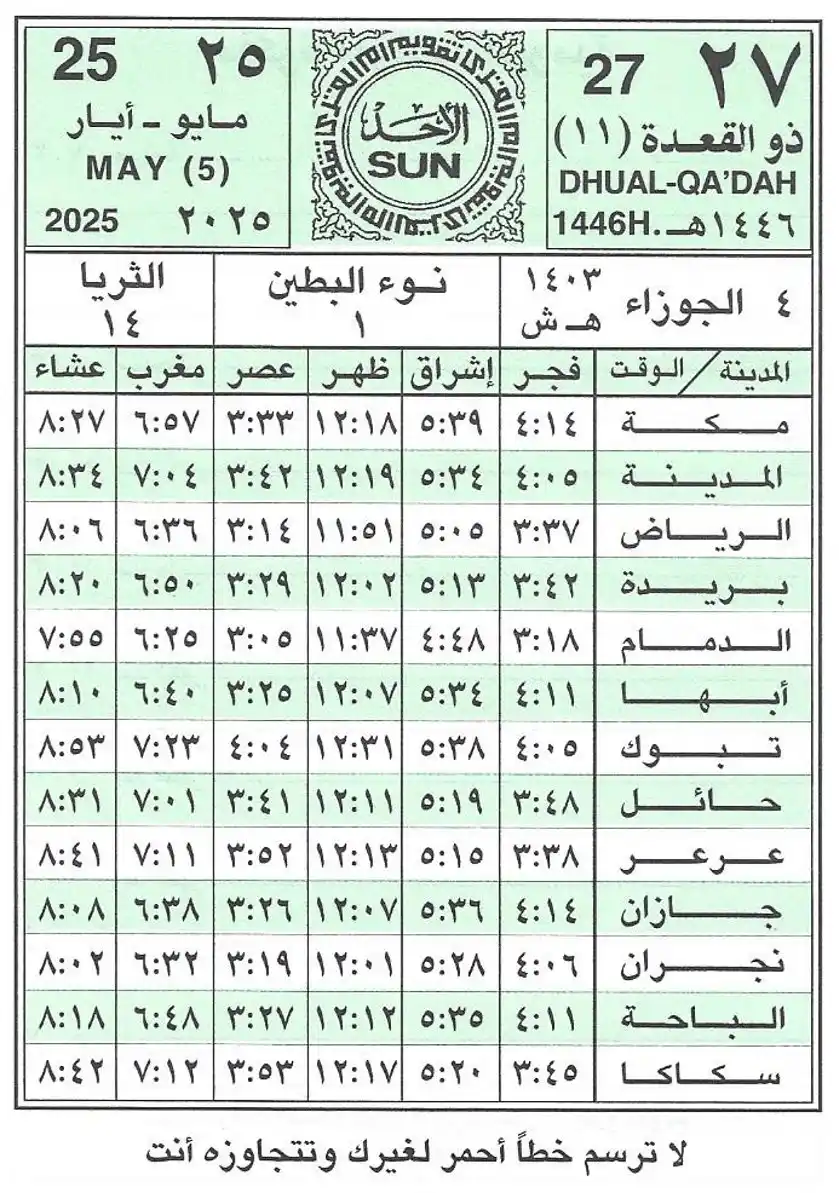 ٢٧ 27
ذو القعدة (١١)
DHUAL-QA'DAH
1446H. ١٤٤٦هـ
الأحد
SUN
٢٥ 25
مايو - أيار
MAY (5)
٢٠٢٥ 2025
٤ الجوزاء ١٤٠٣ هـ ش
نوء البطين ١
الثريا ١٤
المدينة / الوقت فجر إشراق ظهر عصر مغرب عشاء
مكة ٤:١٤ ٥:٣٩ ١٢:١٨ ٣:٣٣ ٦:٥٧ ٨:٢٧
المدينة ٤:٠٥ ٥:٣٤ ١٢:١٩ ٣:٤٢ ٧:٠٤ ٨:٣٤
الرياض ٣:٣٧ ٥:٠٥ ١١:٥١ ٣:١٤ ٦:٣٦ ٨:٠٦
بريدة ٣:٤٢ ٥:١٣ ١٢:٠٢ ٣:٢٩ ٦:٥٠ ٨:٢٠
الدمام ٣:١٨ ٤:٤٨ ١١:٣٧ ٣:٠٥ ٦:٢٥ ٧:٥٥
أبها ٤:١١ ٥:٣٤ ١٢:٠٧ ٣:٢٥ ٦:٤٠ ٨:١٠
تبوك ٤:٠٥ ٥:٣٨ ١٢:٣١ ٤:٠٤ ٧:٢٣ ٨:٥٣
حائل ٣:٤٨ ٥:١٩ ١٢:١١ ٣:٤١ ٧:٠١ ٨:٣١
عرعر ٣:٣٨ ٥:١٥ ١٢:١٣ ٣:٥٢ ٧:١١ ٨:٤١
جازان ٤:١٤ ٥:٣٦ ١٢:٠٧ ٣:٢٦ ٦:٣٨ ٨:٠٨
نجران ٤:٠٦ ٥:٢٨ ١٢:٠١ ٣:١٩ ٦:٣٢ ٨:٠٢
الباحة ٤:١١ ٥:٣٥ ١٢:١٢ ٣:٢٧ ٦:٤٨ ٨:١٨
سكاكا ٣:٤٥ ٥:٢٠ ١٢:١٧ ٣:٥٣ ٧:١٢ ٨:٤٢
لا ترسم خطاً أحمر لغيرك وتتجاوزه أنت